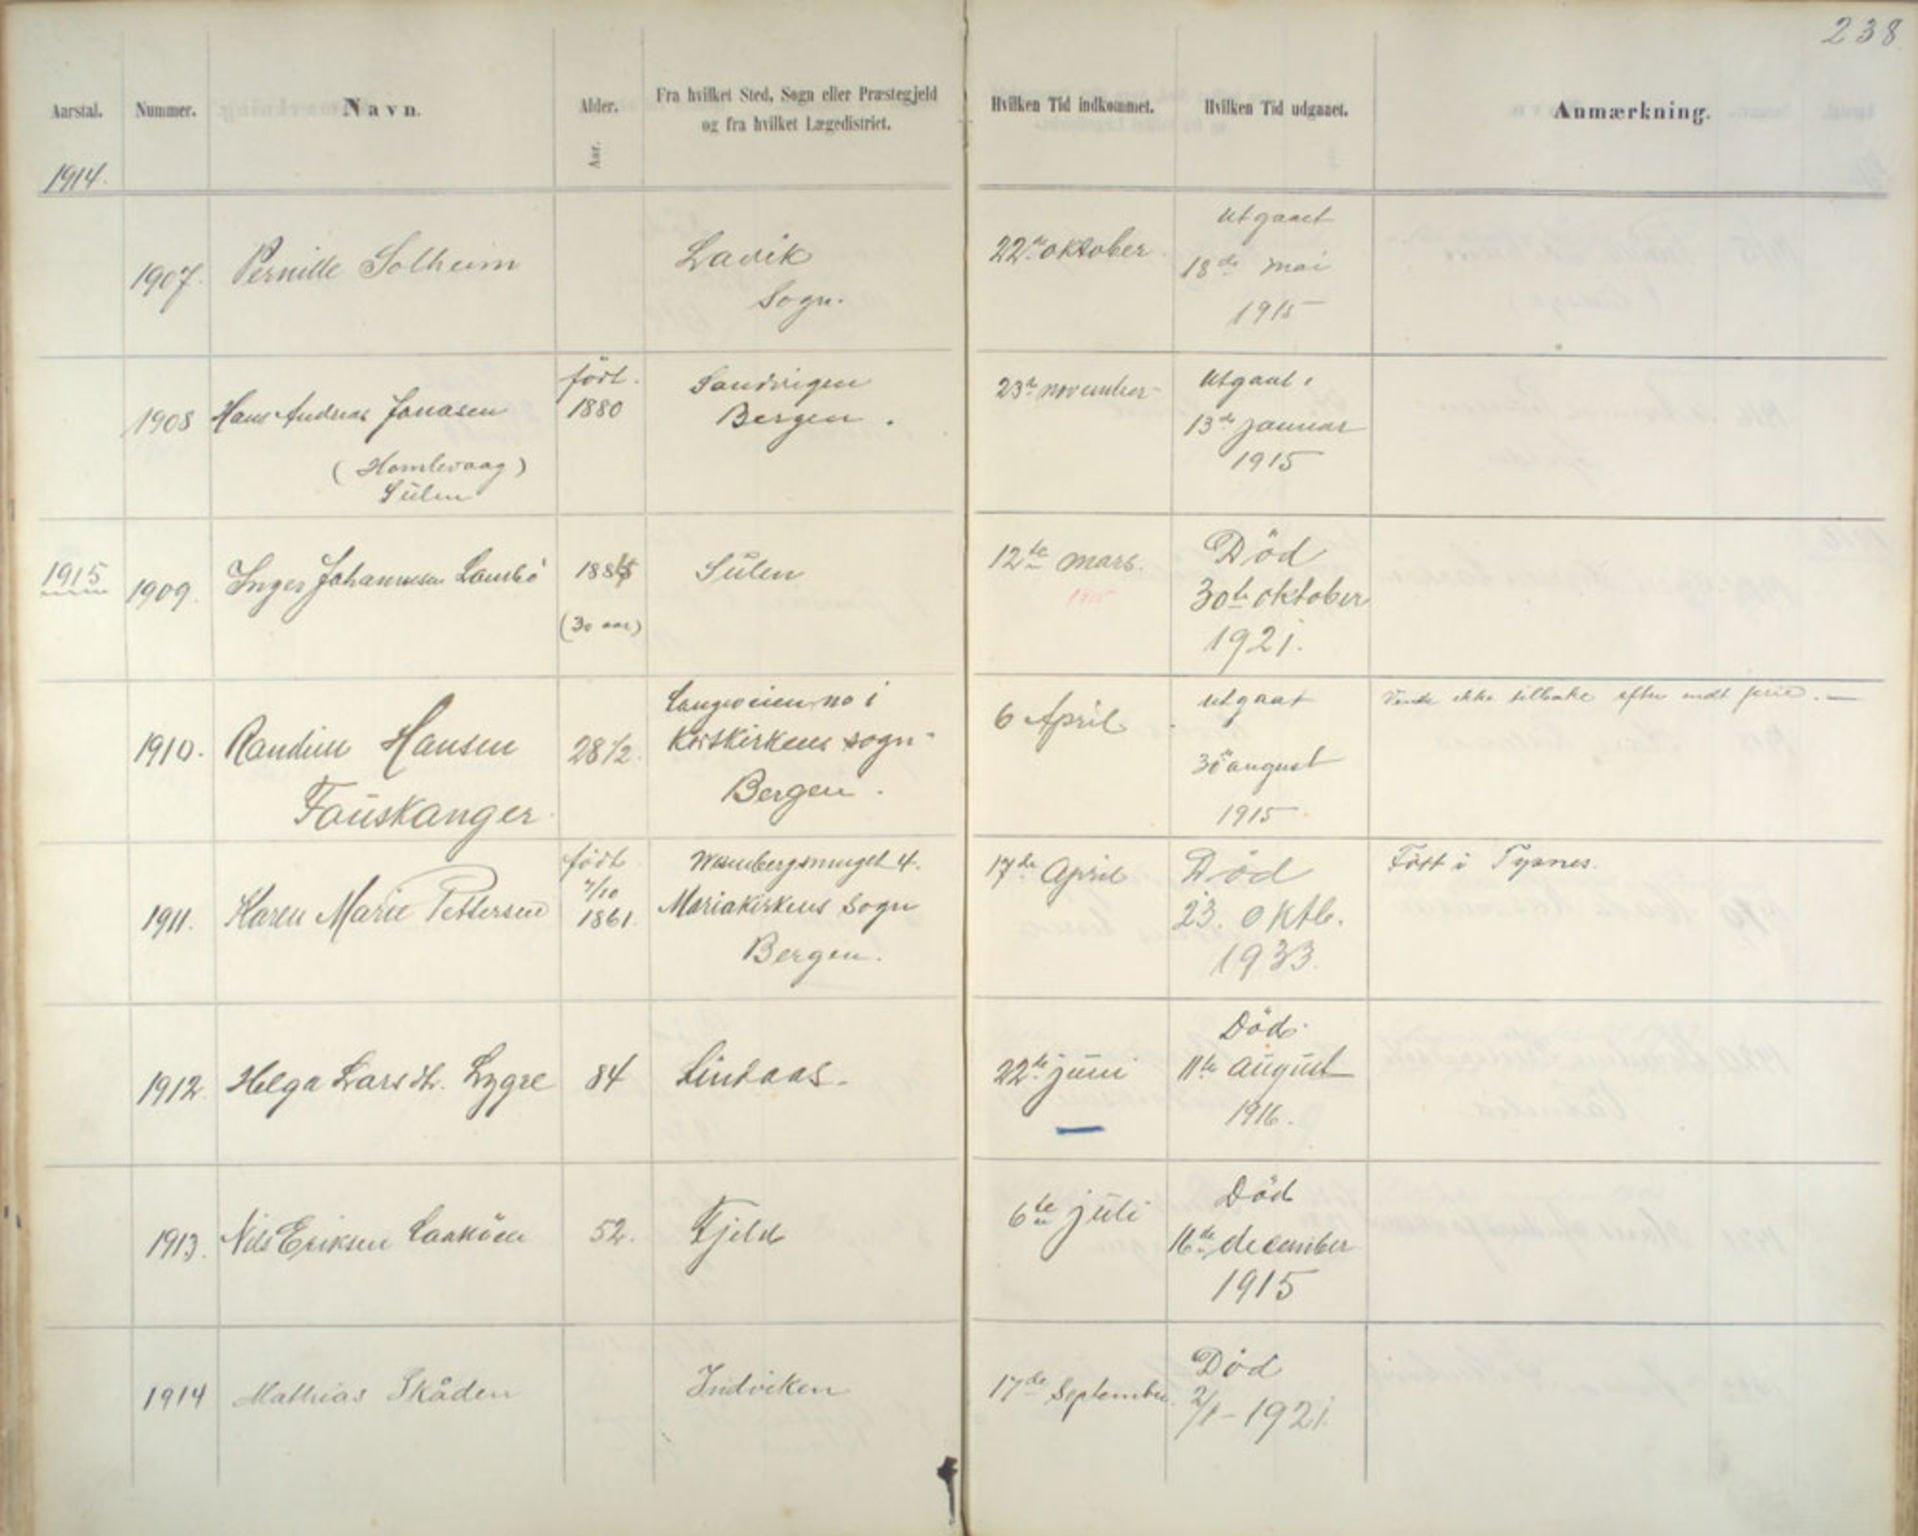 238
Aarstal.
Nummer.
Navn.
Alder.
Aar.
Fra hvilket Sted, Sogn eller Præstegjeld
og fra hvilket Lægedistrict.
Hvilken Tid indkommet.
Hvilken Tid udgaaet.
Anmærkning.
1914.
1907.
Pernille Solheim
Lavik
Sogn.
22de oktober
Utgaaet
18de mai
1915
1908
Hans Andreas Jonasen
(Homlevaag)
Sülen
född.
1880
Sandvigen
Bergen.
23de november
Utgaat.
13de januar
1915
1915
1909.
Inger Johannesen Lambö
(30 aar)
Sülen
12te mars.
1915
Död
30te oktober
1921.
1910.
Randine Hansen
Fauskanger
28 1/2
Langeveien no 1
Korskirkens sogn
Bergen.
6 April
Utgaat
30 august
1915
ikke tilbake efter endt ferie.
1911.
Karen Marie Pettersen
født
7/10
1861.
4.
Mariakirkens Sogn
Bergen.
17de April
Död
23. oktb.
1933.
Fött i Tysnes.
1912.
Helga Larsdt. Lygre
84
Lindaas
22de juni
Död
11te august
1916.
1913.
Nils Eriksen
52.
Fjeld
6te juli
Död
16de december
1915
1914
Mathias Skåden
Indviken
17de September
Död
2/1-1921.